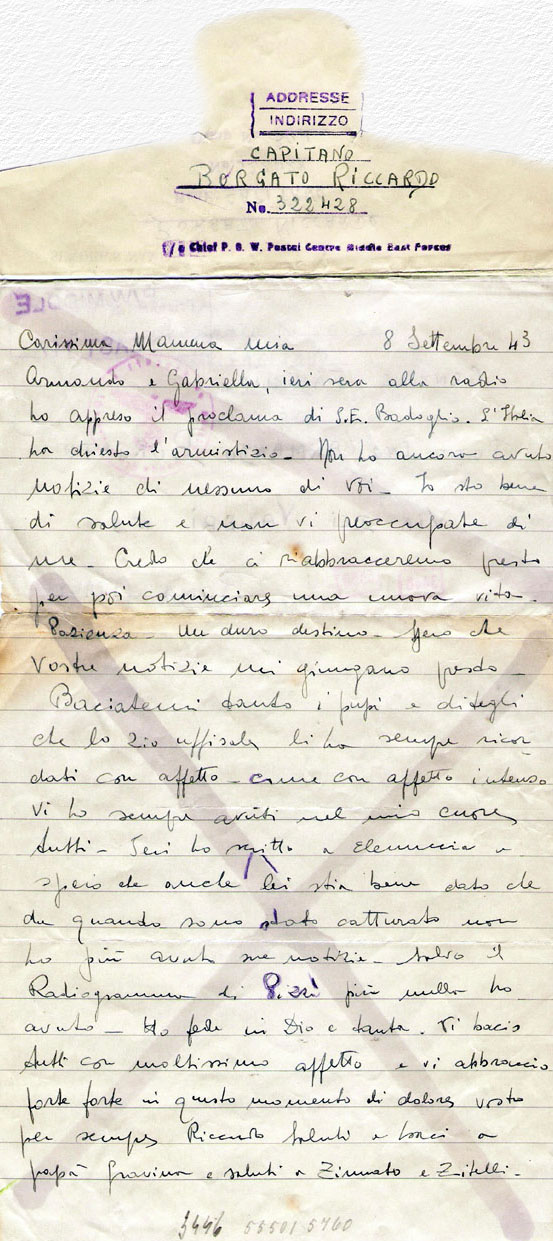 ADDRESSE
INDIRIZZO
CAPITANO
BORGATO RICCARDO
No. 322428
c/o Chief P. O. W. Postal Centre Middle East Forces
Carissima Mamma mia 8 Settembre 43
Armando e Gabriella, ieri sera alla radio
ho appreso il proclama di S.E. Badoglio. L'Italia
ha chiesto l'armistizio - Non ho ancora avuto
notizie di nessuno di Voi - Io sto bene
di salute e non vi preoccupate di
me - Credo che ci riabbracceremo presto
per poi cominciare una nuova vita -
Pazienza - Un duro destino - Spero che
Vostre notizie mi giungano presto -
Baciatemi tanto i pupi e ditegli
che lo Zio uffisale li ha sempre ricor
dati con affetto - come con affetto intenso
Vi ho sempre avuti nel mio cuore
tutti - Ieri ho scritto a Elenuccia e
spero che anche lei stia bene dato che
da quando sono stato catturato non
ho più avuto sue notizie - Salvo il
Radiogramma di più nulla ho
avuto - Ho fede in Dio e tanta. Vi bacio
tutti con moltissimo affetto e vi abbraccio
forte forte in questo momento di dolore vostro
per sempre Riccardo Saluti e baci a
papà Gravina e saluti a Zinnato e Zitelli -
3446 55501 5760